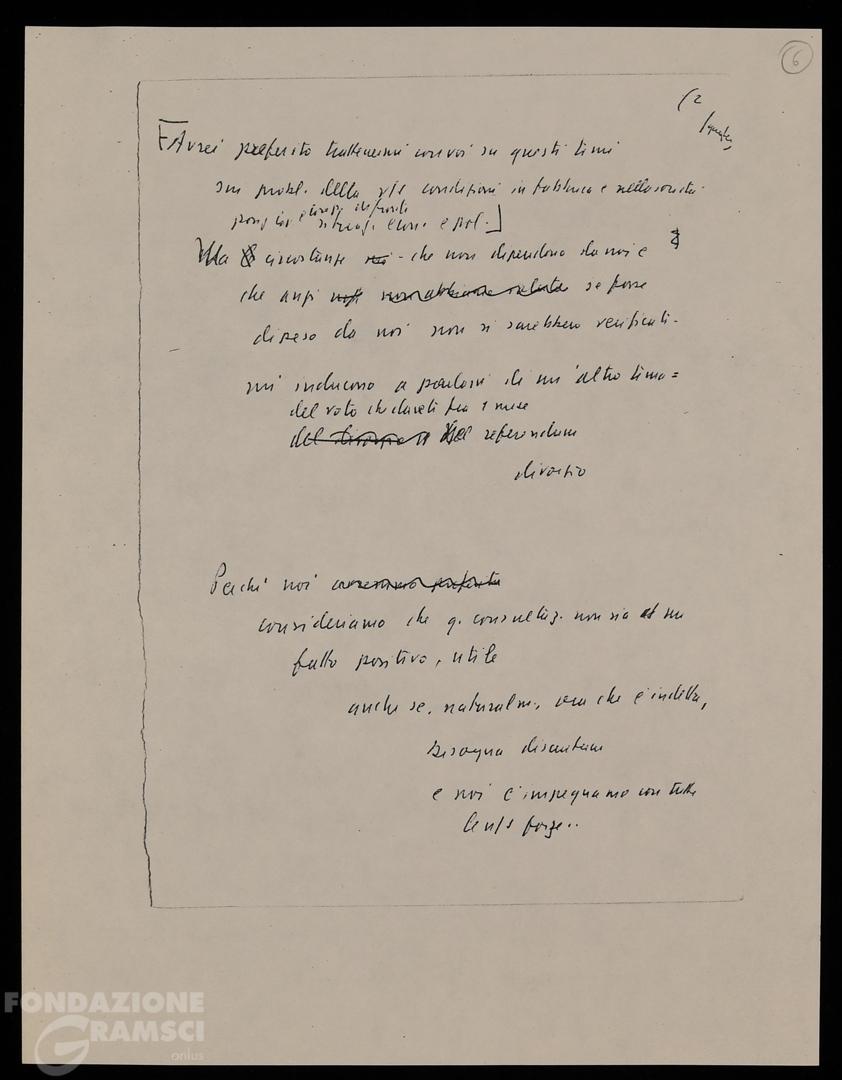 6
(2
[Avrei preferito trattenermi con voi su questi temi
sui probl. della v/s condizione in fabbrica e nella società.
di fronte
econ. e pol.]
Ma circostanze - che non dipendono da noi e
che anzi non abbiamo voluto se fosse
dipeso da noi non si sarebbero verificati -
mi inducono a parlarvi di un'altro tema =
del voto che darete fra 1 mese
del referendum
divorzio
Perché noi avremmo preferito
consideriamo che q. consultaz. non sia un
fatto positivo, utile
anche se, naturalm., ora che è indetta,
bisogna
e noi c'impegnamo con tutte
le n/s forze..
FONDAZIONE
GRAMSCI
onlus